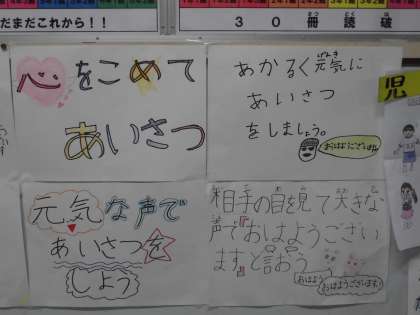 だまだこれから!!
30冊読破
心をこめて
あいさつ
あかるく元気に
あいさつ
をしましょう。
おはようございます
児
元気な声で
あいさつを
しよう
相手の目を見て大きな
声で『おはようござい
ます』と言おう
おはよう
おはようございます!